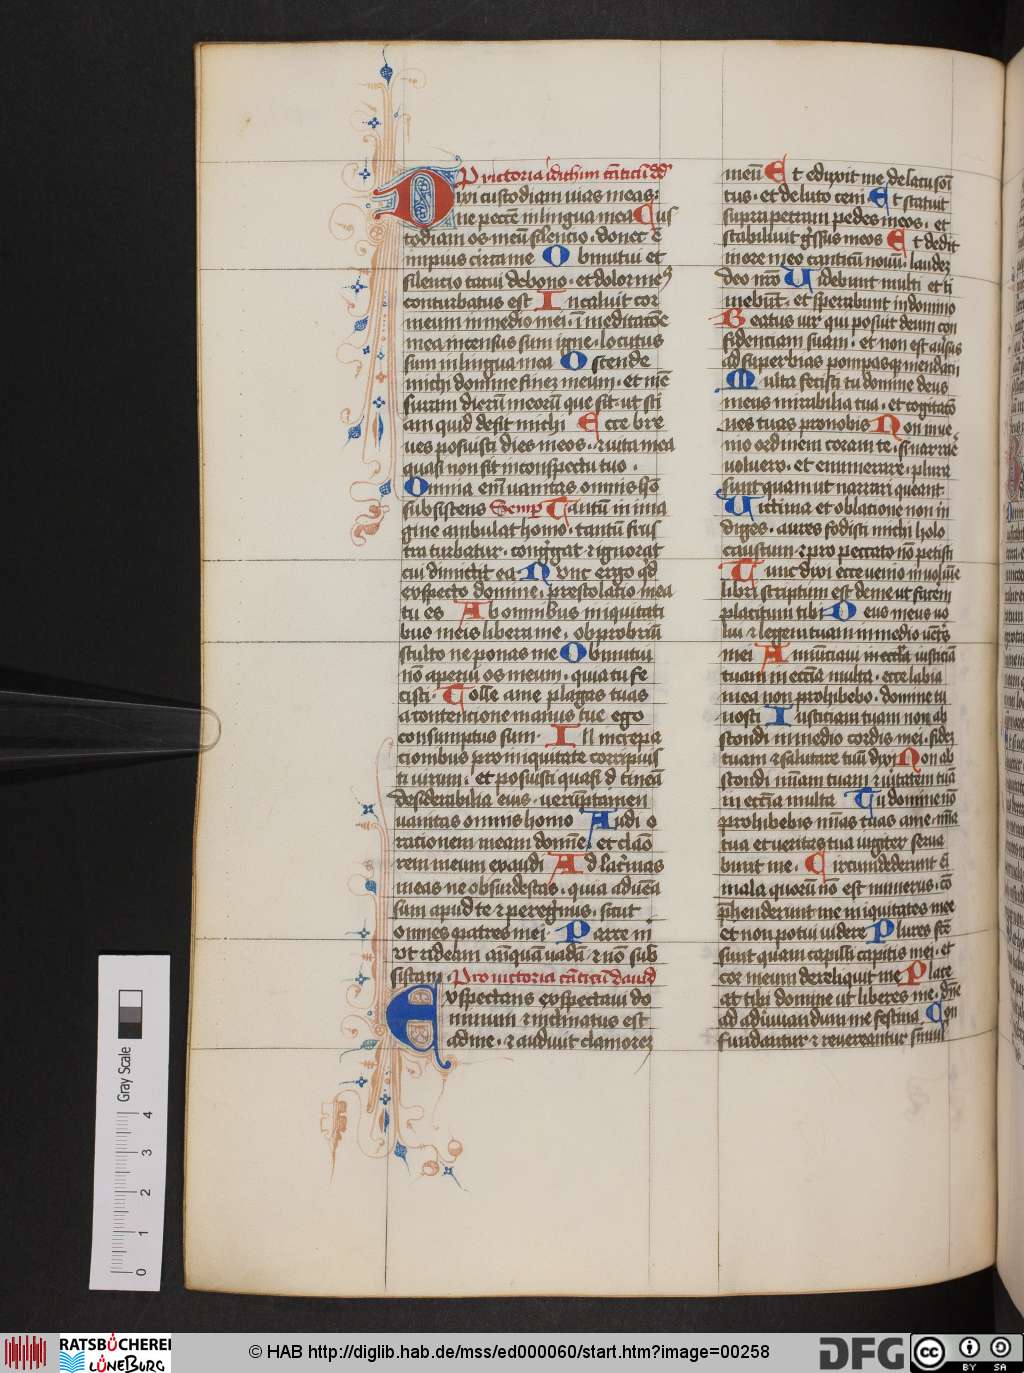 P victoria idithim cāticū dd
Dixi custodiam vias meas:
ne peccē in lingua mea Cus
todiam os meū silencio. donec ē
impius circa me Obmutui et
silencio tacui de bono. et dolor meꝰ
conturbatus est Incaluit cor
meum in medio mei. ī meditacōe
mea incensus sum igne. locutus
sum in lingua mea Ostende
michi domine finez meum. et mē
suram dierū meorū que sit. ut sci
am quid desit michi Ecce bre
ves posuisti dies meos. ⁊ vita mea
quasi non sit in conspectu tuo.
Omnia em̄ vanitas omnis hō
subsistens Semp Tantū in ima
gine ambulat homo. tantū frus
tra turbatur. cong̾gat ⁊ ignorat
cui dimictit ea Nunc ergo qd
exspecto domine. prestolatio mea
tu es Ab omnibus iniquitati
bus meis libera me. obprobriū
stulto ne ponas me Obmutui
nō aperui os meum. quia tu fe
cisti. Tolle a me plagas tuas
a contencione manus tue ego
consumptus sum. In increpa
cionibus pro iniquitate corripuis
ti virum. et posuisti quasi d tineā
desiderabilia eius. verūptamen
vanitas omnis homo Audi o
rationem meam domīe. et clāo
rem meum exaudi Ad lacrimas
meas ne obsurdescas. quia advēa
sum apud te ⁊ peregrinus. sicut
omnes patres mei. Parce m̄
ut rideam an̄quam vadā ⁊ nō sub
sistam. Pro victoria cāticū david
Exspectans exspectavi do
minum ⁊ inclinatus est
ad me. ⁊ audivit clamorez
meū Et eduxit me de lacu soī
tus. et de luto ceni Et statuit
supra petram pedes meos. et
stabilivit g̾ssus meos Et dedit
in ore meo canticū novū. laudez
deo nr̄o Videbunt multi et ti
mebūt. et sperabunt in domino
Beatus vir qui posuit deum con
fidenciam suam. et non est aversus
ad superbias pompasq̨ mendacii
Multa fecisti tu domine deus
meus mirabilia tua. et cogitacō
nes tuas pro nobis Non inve
nio ordinem coram te. si narrare
voluero. et enumerare. plura
sunt quam ut narrari queant
Victima et oblacione non in
diges. aures fodisti michi holo
caustum ⁊ pro peccato nō petisti
Tunc dixi ecce venio in volumīe
libri scriptum est de me ut facem
placitum tibi Deus meus vo
lui ⁊ legem tuam in medio vētris
mei Annūciavi in ecclīa iusticiā
tuam in ecclīa multa. ecce labia
mea non prohibebo. domine tu
nosti Iusticiam tuam non ab
scondi in medio cordis mei. fidez
tuam ⁊ salutare tuū dixi Non ab
scondi mīam tuam ⁊ v̾itatem tuā
in ecclīa multa Tu domine nō
prohibebis mīas tuas a me. mīa
tua et veritas tua iugiter serva
bunt me. Circumdederunt ē
mala quorū nō est numerus. cō
p̄henderunt me iniquitates mee
et non potui videre Plures fcē
sunt quam capilli capitis mei. et
cor meum dereliquit me Place
at tibi domine ut liberes me. dn̄e
ad adiuvandum me festina Con
fundantur ⁊ revereantur simul
Gray Scale
0 1 2 3 4
RATSBÜCHEREI
LÜNEBURG
© HAB http://diglib.hab.de/mss/ed000060/start.htm?image=00258
DFG
cc BY SA